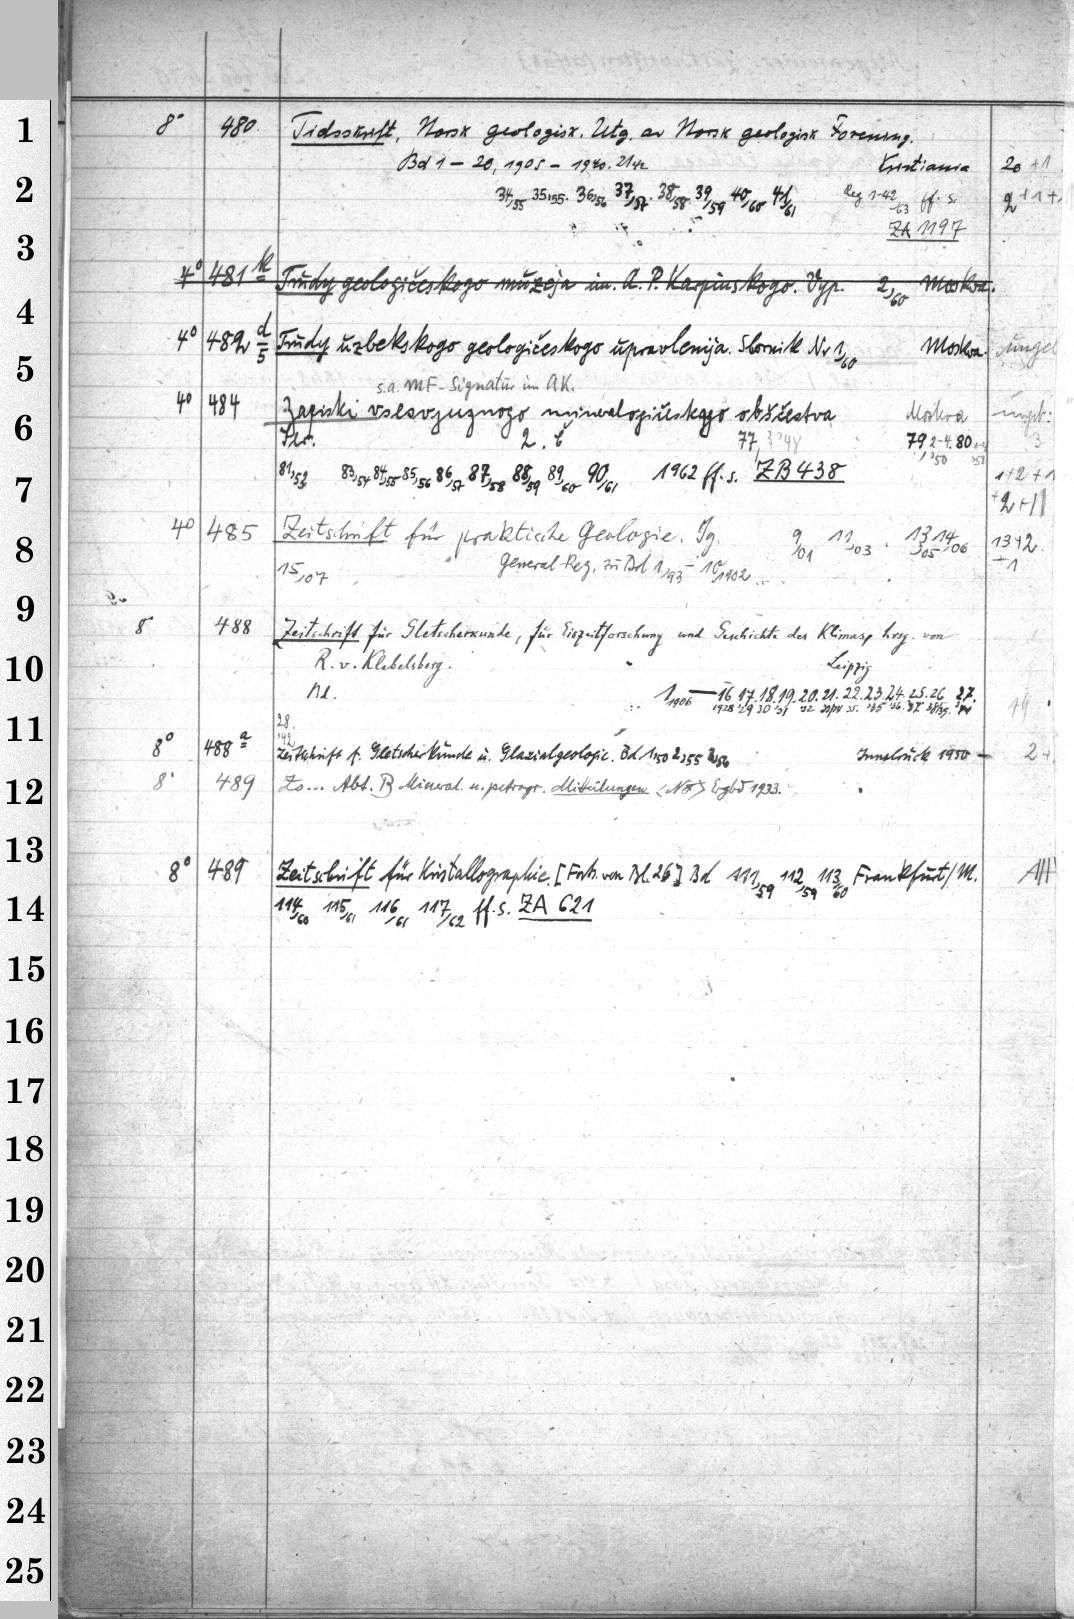 1
8° 480. Tidsskrift, Norsk geologisk. Utg. av Norsk geologisk Forening.
Bd 1 – 20, 1905 – 1940. 21/42 Kristiania 20 +1
2
34/55 35/55. 36/56 37/57. 38/58 39/59 40/60 41/61 Reg 1-42/63 ff. s. 2+1+1
3
ZA 1197
4° 481 k Trudy geologičeskogo muzeja im. A. P. Karpinskogo. Vyp. 2/60 Moskva.
4
4° 482 d/5 Trudy uzbekskogo geologičeskogo upravlenija. Sbornik Nr 1/60 Moskva.
5
s.a. MF-Signatur im AK.
4° 484 Zapiski vsesojuznogo mineralogičeskogo obščestva Moskva
6
Ser. 2. č 77, 3 '48 79 2-4. 80 3
7
81/52 83/54 84/55 85/56 86/57 87/58 88/59 89/60 90/61 1962 ff. s. ZB 438 1+2+1
+2+11
4° 485 Zeitschrift für praktische Geologie. Jg. 9/01 11/03. 13/05 14/06 13+2
8
15/07 General-Reg. zu Bd 1/93 – 10/1902 +1
9
8° 488 Zeitschrift für Gletscherkunde, für Eiszeitforschung und Geschichte des Klimas, hrsg. von
10
R. v. Klebelsberg. Leipzig
Bd. 1 1906 — 16 17. 18. 19. 20. 21. 22. 23. 24. 25. 26 27.
1928 '29 30 '31 '32
11
28.
'42
8° 488 a Zeitschrift f. Gletscherkunde u. Glazialgeologie. Bd 1/50 2/55 3/56 Innsbruck 1950 –
12
8° 489 Zs... Abt. B Mineral. u. petrogr. Mitteilungen <NF> Ergbd 1933.
13
8° 489 Zeitschrift für Kristallographie. [Forts. von Bl. 26] Bd 111/59 112/59 113/60 Frankfurt/M.
14
114/60 115/61 116/61 117/62 ff. s. ZA 621
15
16
17
18
19
20
21
22
23
24
25